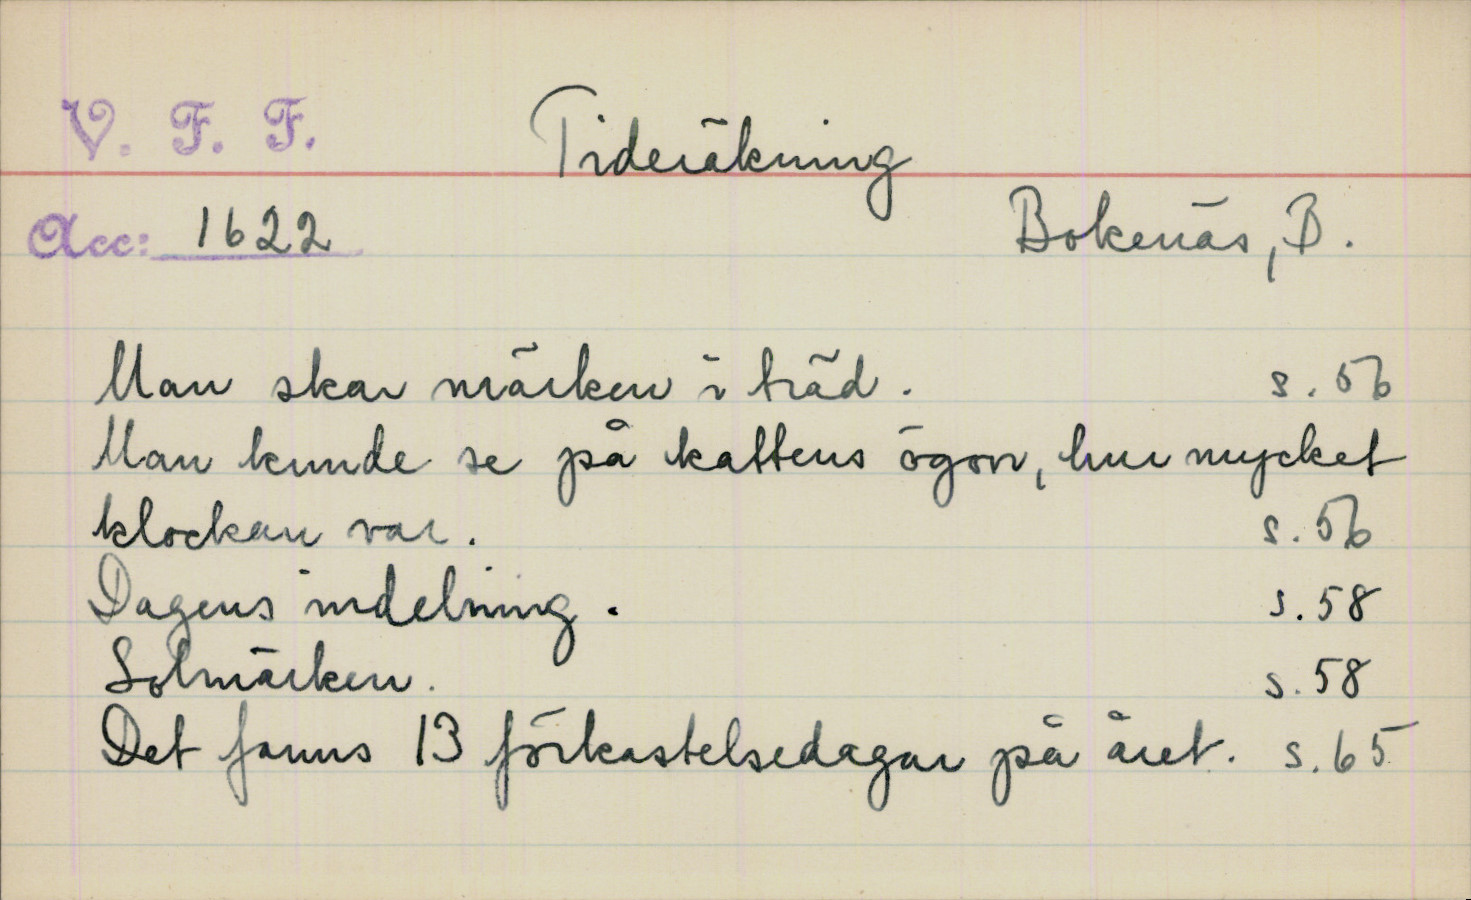 V. F. F.
Tideräkning
Acc: 1622
Bokenäs, B.
Man skar märken i träd. s. 56
Man kunde se på kattens ögon, hur mycket
klockan var. s. 56
Dagens indelning. s. 58
Solmärken. s. 58
Det fanns 13 förkastelsedagar på året. s. 65